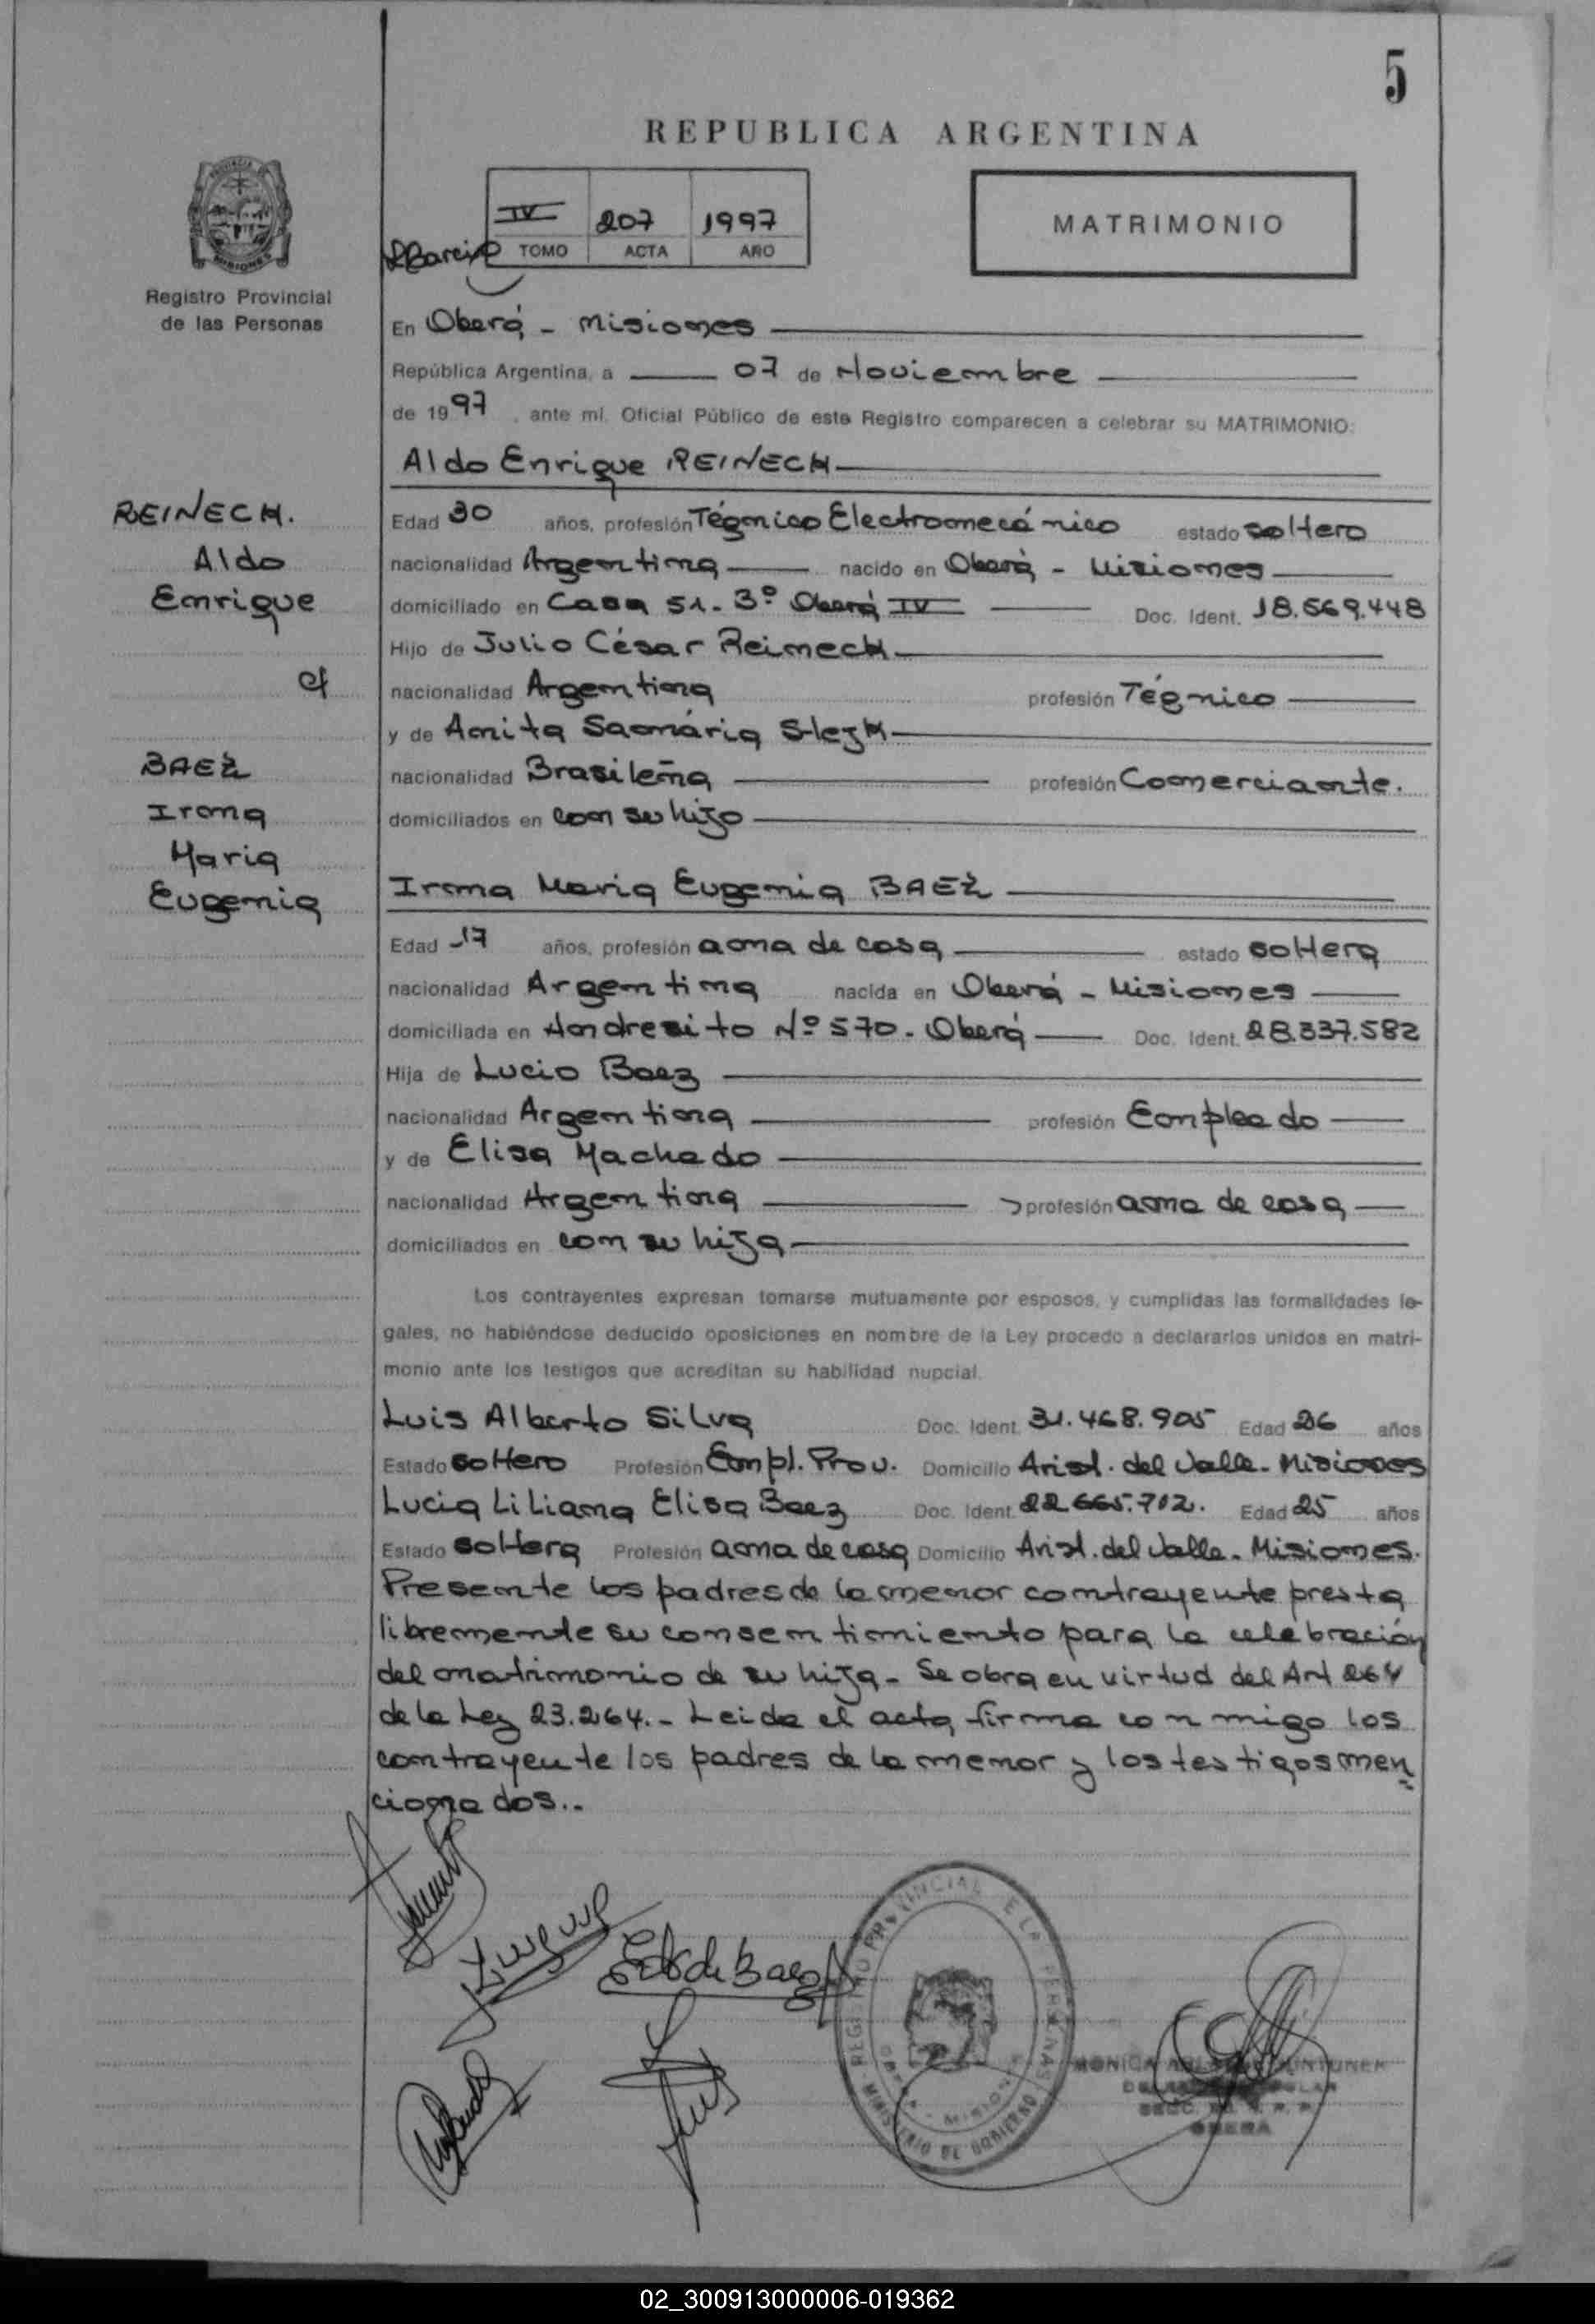 5
REPUBLICA ARGENTINA
IV 207 1997
TOMO ACTA AÑO
MATRIMONIO
PROVINCIA DE
MISIONES
Registro Provincial
de las Personas
En Oberá - Misiones
República Argentina, a 07 de Noviembre
de 1997, ante mí, Oficial Público de este Registro comparecen a celebrar su MATRIMONIO:
Aldo Enrique REINECK
REINECK.
Aldo
Enrique
c/
BAEZ
Irma
Maria
Eugenia
Edad 30 años, profesión Tégnico Electromecánico estado soltero
nacionalidad Argentina nacido en Oberá - Misiones
domiciliado en Casa 51 - 3º Oberá IV Doc. Ident. 18.569.448
Hijo de Julio César Reineck
nacionalidad Argentina profesión Tégnico
y de Anita
nacionalidad Brasileña profesión Comerciante.
domiciliados en con su hijo
Irma Maria Eugenia BAEZ
Edad 17 años, profesión ama de casa estado soltera
nacionalidad Argentina nacida en Oberá - Misiones
domiciliada en Andresito Nº 570 - Oberá Doc. Ident. 28.337.582
Hija de Lucio Baez
nacionalidad Argentina profesión Empleado
y de Elisa Machado
nacionalidad Argentina profesión ama de casa
domiciliados en con su hija
Los contrayentes expresan tomarse mutuamente por esposos, y cumplidas las formalidades le-
gales, no habiéndose deducido oposiciones en nombre de la Ley procedo a declararlos unidos en matri-
monio ante los testigos que acreditan su habilidad nupcial.
Luis Alberto Silva Doc. Ident. 31.468.905 Edad 26 años
Estado soltero Profesión Empl. Prov. Domicilio Arist. del Valle - Misiones
Lucia Liliana Elisa Baez Doc. Ident. 22.665.702. Edad 25 años
Estado soltera Profesión ama de casa Domicilio Arist. del Valle - Misiones.
Presente los padres de la menor contrayente presta
libremente su consentimiento para la celebración
del matrimonio de su hija - Se obra en virtud del Art 264
de la Ley 23.264. - Leida el acta, firma conmigo los
contrayente los padres de la menor y los testigos men
cionados..
de Baez
REGISTRO PROVINCIAL DE LAS PERSONAS
OBERA - MISIONES
MINISTERIO DE GOBIERNO
MONICA
OBERA
02_300913000006-019362